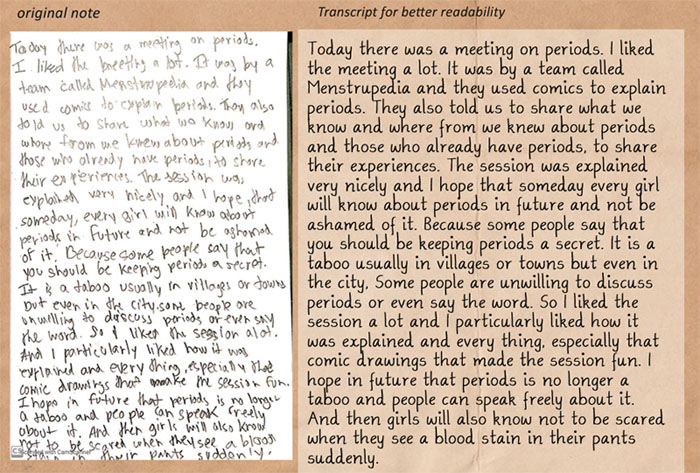 original note
Today there was a meeting on periods.
I liked the meeting a lot. It was by a
team called Menstrupedia and they
used comics to explain periods. They also
told us to share what we know and
where from we knew about periods and
those who already have periods, to share
their experiences. The session was
explained very nicely and I hope, that
someday, every girl will know about
periods in future and not be ashamed
of it. Because some people say that
you should be keeping periods a secret.
It is a taboo usually in villages or towns
but even in the city, some people are
unwilling to discuss periods or even say
the word. So I liked the session a lot.
And I particularly liked how it was
explained and every thing, especially that
comic drawings that make the session fun.
I hope in future that periods is no longer
a taboo and people can speak freely
about it. And then girls will also know
not to be scared when they see a blood
stain in their pants suddenly.
CS Scanned with CamScanner
Transcript for better readability
Today there was a meeting on periods. I liked
the meeting a lot. It was by a team called
Menstrupedia and they used comics to explain
periods. They also told us to share what we
know and where from we knew about periods
and those who already have periods, to share
their experiences. The session was explained
very nicely and I hope that someday every girl
will know about periods in future and not be
ashamed of it. Because some people say that
you should be keeping periods a secret. It is a
taboo usually in villages or towns but even in
the city, Some people are unwilling to discuss
periods or even say the word. So I liked the
session a lot and I particularly liked how it
was explained and every thing, especially that
comic drawings that made the session fun. I
hope in future that periods is no longer a
taboo and people can speak freely about it.
And then girls will also know not to be scared
when they see a blood stain in their pants
suddenly.